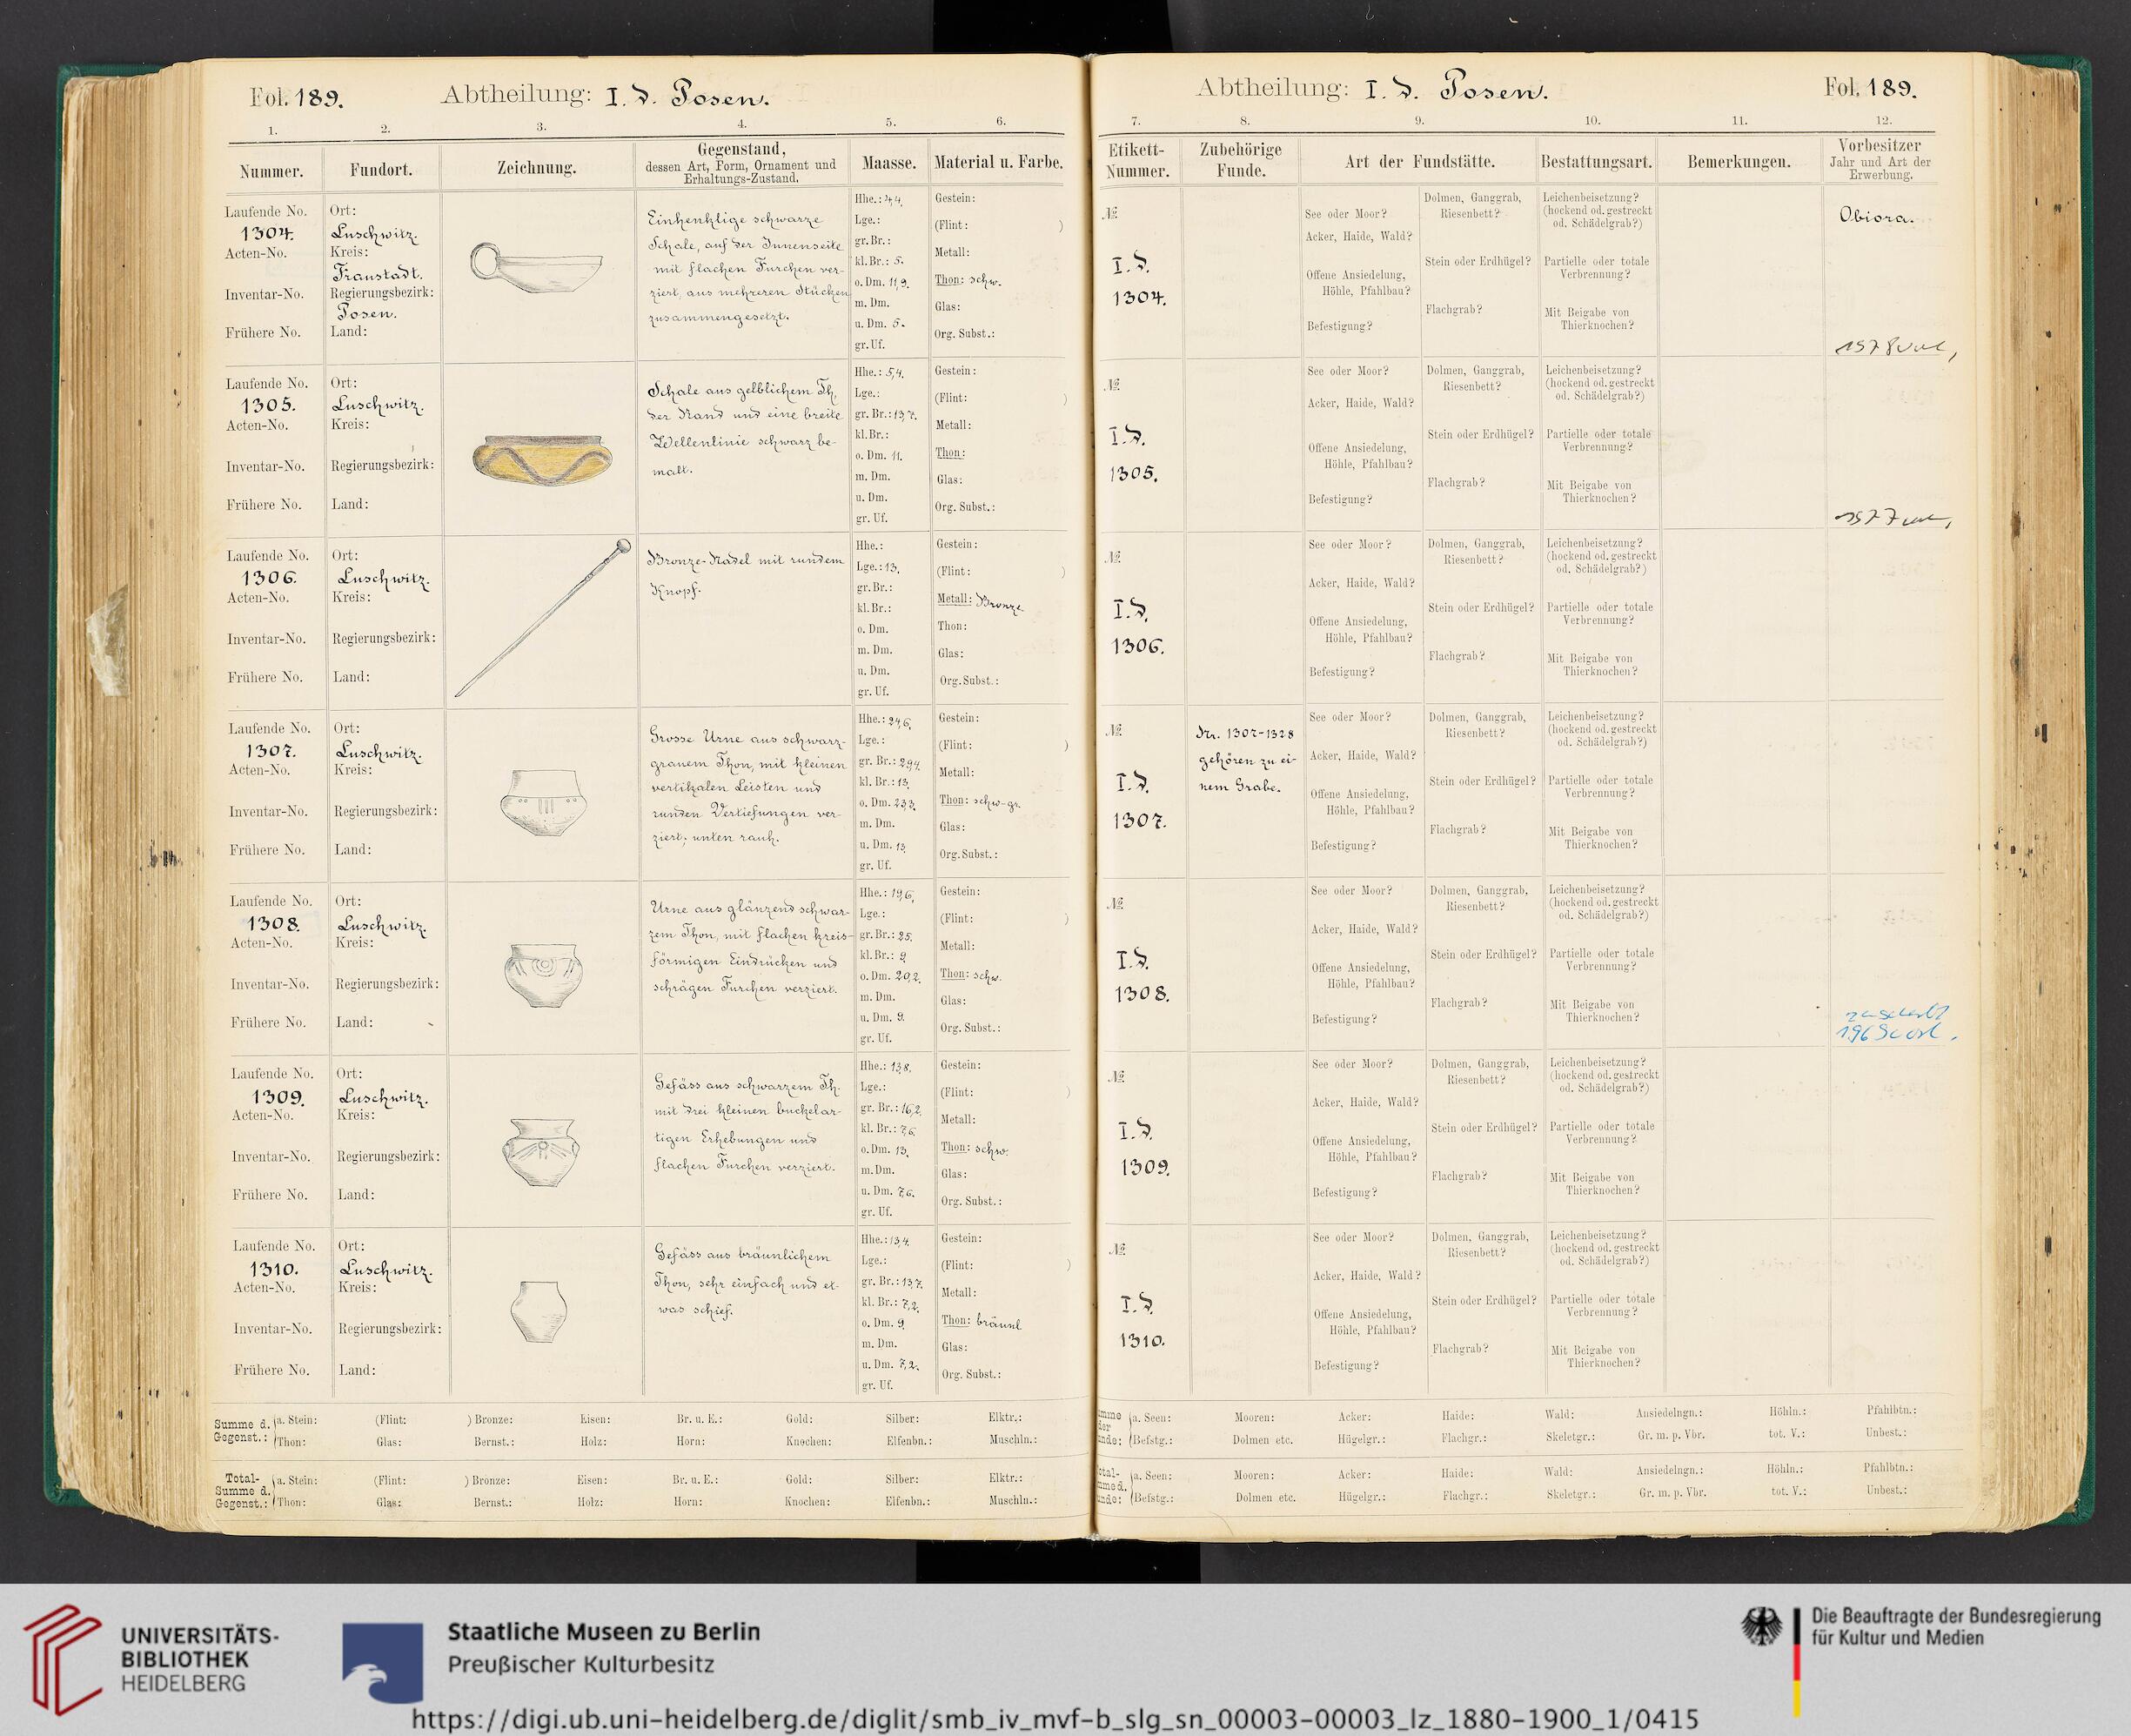 Fol. 189.
Abtheilung: I. d. Posen.
1. 2. 3. 4. 5. 6.
Nummer. Fundort. Zeichnung. Gegenstand, dessen Art, Form, Ornament und Erhaltungs-Zustand. Maasse. Material u. Farbe.
Laufende No.
1304.
Acten-No.
Inventar-No.
Frühere No.
Ort:
Luschwitz.
Kreis:
Fraustadt.
Regierungsbezirk:
Posen.
Land:
Einhenklige schwarze
Schale, auf der Innenseite
mit flachen Furchen ver-
ziert, aus mehreren Stücken
zusammengesetzt.
Hhe.: 4,4.
Lge.:
gr. Br.:
kl. Br.: 5.
o. Dm. 11,9.
m. Dm.
u. Dm. 5.
gr. Uf.
Gestein:
(Flint: )
Metall:
Thon: schw.
Glas:
Org. Subst.:
Laufende No.
1305.
Acten-No.
Inventar-No.
Frühere No.
Ort:
Luschwitz.
Kreis:
Regierungsbezirk:
Land:
Schale aus gelblichem Th,
der Rand und eine breite
Wellenlinie schwarz be-
malt.
Hhe.: 5,4.
Lge.:
gr. Br.: 13,7.
kl. Br.:
o. Dm. 11.
m. Dm.
u. Dm.
gr. Uf.
Gestein:
(Flint: )
Metall:
Thon:
Glas:
Org. Subst.:
Laufende No.
1306.
Acten-No.
Inventar-No.
Frühere No.
Ort:
Luschwitz.
Kreis:
Regierungsbezirk:
Land:
Bronze-Nadel mit rundem
Knopf.
Hhe.:
Lge.: 13.
gr. Br.:
kl. Br.:
o. Dm.
m. Dm.
u. Dm.
gr. Uf.
Gestein:
(Flint: )
Metall: Bronze
Thon:
Glas:
Org. Subst.:
Laufende No.
1307.
Acten-No.
Inventar-No.
Frühere No.
Ort:
Luschwitz.
Kreis:
Regierungsbezirk:
Land:
Grosse Urne aus schwarz-
grauem Thon, mit kleinen
vertikalen Leisten und
runden Vertiefungen ver-
ziert; unten rauh.
Hhe.: 24,6.
Lge.:
gr. Br.: 29,4.
kl. Br.: 13.
o. Dm. 23,3.
m. Dm.
u. Dm. 13.
gr. Uf.
Gestein:
(Flint: )
Metall:
Thon: schw-gr.
Glas:
Org. Subst.:
Laufende No.
1308.
Acten-No.
Inventar-No.
Frühere No.
Ort:
Luschwitz.
Kreis:
Regierungsbezirk:
Land:
Urne aus glänzend schwar-
zem Thon, mit flachen kreis-
förmigen Eindrücken und
schrägen Furchen verziert.
Hhe.: 19,6.
Lge.:
gr. Br.: 25.
kl. Br.: 9.
o. Dm. 20,2.
m. Dm.
u. Dm. 9.
gr. Uf.
Gestein:
(Flint: )
Metall:
Thon: schw.
Glas:
Org. Subst.:
Laufende No.
1309.
Acten-No.
Inventar-No.
Frühere No.
Ort:
Luschwitz.
Kreis:
Regierungsbezirk:
Land:
Gefäss aus schwarzem Th.
mit drei kleinen buckelar-
tigen Erhebungen und
flachen Furchen verziert.
Hhe.: 13,8.
Lge.:
gr. Br.: 16,2.
kl. Br.: 7,6.
o. Dm. 13.
m. Dm.
u. Dm. 7,6.
gr. Uf.
Gestein:
(Flint: )
Metall:
Thon: schw.
Glas:
Org. Subst.:
Laufende No.
1310.
Acten-No.
Inventar-No.
Frühere No.
Ort:
Luschwitz.
Kreis:
Regierungsbezirk:
Land:
Gefäss aus bräunlichem
Thon, sehr einfach und et-
was schief.
Hhe.: 13,4.
Lge.:
gr. Br.: 13,7.
kl. Br.: 7,2.
o. Dm. 9.
m. Dm.
u. Dm. 7,2.
gr. Uf.
Gestein:
(Flint: )
Metall:
Thon: bräunl
Glas:
Org. Subst.:
Summe d. Gegenst.: a. Stein: (Flint: ) Bronze: Eisen: Br. u. E.: Gold: Silber: Elktr.:
Thon: Glas: Bernst.: Holz: Horn: Knochen: Elfenbn.: Muschln.:
Total-Summe d. Gegenst.: a. Stein: (Flint: ) Bronze: Eisen: Br. u. E.: Gold: Silber: Elktr.:
Thon: Glas: Bernst.: Holz: Horn: Knochen: Elfenbn.: Muschln.:
Abtheilung: I. d. Posen.
Fol. 189.
7. 8. 9. 10. 11. 12.
Etikett-Nummer. Zubehörige Funde. Art der Fundstätte. Bestattungsart. Bemerkungen. Vorbesitzer Jahr und Art der Erwerbung.
№
I. d.
1304.
See oder Moor?
Acker, Haide, Wald?
Offene Ansiedelung,
Höhle, Pfahlbau?
Befestigung?
Dolmen, Ganggrab,
Riesenbett?
Stein oder Erdhügel?
Flachgrab?
Leichenbeisetzung?
(hockend od. gestreckt
od. Schädelgrab?)
Partielle oder totale
Verbrennung?
Mit Beigabe von
Thierknochen?
Obiora.
№
I. d.
1305.
See oder Moor?
Acker, Haide, Wald?
Offene Ansiedelung,
Höhle, Pfahlbau?
Befestigung?
Dolmen, Ganggrab,
Riesenbett?
Stein oder Erdhügel?
Flachgrab?
Leichenbeisetzung?
(hockend od. gestreckt
od. Schädelgrab?)
Partielle oder totale
Verbrennung?
Mit Beigabe von
Thierknochen?
№
I. d.
1306.
See oder Moor?
Acker, Haide, Wald?
Offene Ansiedelung,
Höhle, Pfahlbau?
Befestigung?
Dolmen, Ganggrab,
Riesenbett?
Stein oder Erdhügel?
Flachgrab?
Leichenbeisetzung?
(hockend od. gestreckt
od. Schädelgrab?)
Partielle oder totale
Verbrennung?
Mit Beigabe von
Thierknochen?
№
I. d.
1307.
Nr. 1307-1328
gehören zu ei-
nem Grabe.
See oder Moor?
Acker, Haide, Wald?
Offene Ansiedelung,
Höhle, Pfahlbau?
Befestigung?
Dolmen, Ganggrab,
Riesenbett?
Stein oder Erdhügel?
Flachgrab?
Leichenbeisetzung?
(hockend od. gestreckt
od. Schädelgrab?)
Partielle oder totale
Verbrennung?
Mit Beigabe von
Thierknochen?
№
I. d.
1308.
See oder Moor?
Acker, Haide, Wald?
Offene Ansiedelung,
Höhle, Pfahlbau?
Befestigung?
Dolmen, Ganggrab,
Riesenbett?
Stein oder Erdhügel?
Flachgrab?
Leichenbeisetzung?
(hockend od. gestreckt
od. Schädelgrab?)
Partielle oder totale
Verbrennung?
Mit Beigabe von
Thierknochen?
№
I. d.
1309.
See oder Moor?
Acker, Haide, Wald?
Offene Ansiedelung,
Höhle, Pfahlbau?
Befestigung?
Dolmen, Ganggrab,
Riesenbett?
Stein oder Erdhügel?
Flachgrab?
Leichenbeisetzung?
(hockend od. gestreckt
od. Schädelgrab?)
Partielle oder totale
Verbrennung?
Mit Beigabe von
Thierknochen?
№
I. d.
1310.
See oder Moor?
Acker, Haide, Wald?
Offene Ansiedelung,
Höhle, Pfahlbau?
Befestigung?
Dolmen, Ganggrab,
Riesenbett?
Stein oder Erdhügel?
Flachgrab?
Leichenbeisetzung?
(hockend od. gestreckt
od. Schädelgrab?)
Partielle oder totale
Verbrennung?
Mit Beigabe von
Thierknochen?
a. Seen: Mooren: Acker: Haide: Wald: Ansiedelngn.: Höhln.: Pfahlbtn.:
Befstg.: Dolmen etc. Hügelgr.: Flachgr.: Skeletgr.: Gr. m. p. Vbr. tot. V.: Unbest.:
a. Seen: Mooren: Acker: Haide: Wald: Ansiedelngn.: Höhln.: Pfahlbtn.:
Befstg.: Dolmen etc. Hügelgr.: Flachgr.: Skeletgr.: Gr. m. p. Vbr. tot. V.: Unbest.:
UNIVERSITÄTS-
BIBLIOTHEK
HEIDELBERG
Staatliche Museen zu Berlin
Preußischer Kulturbesitz
Die Beauftragte der Bundesregierung
für Kultur und Medien
https://digi.ub.uni-heidelberg.de/diglit/smb_iv_mvf-b_slg_sn_00003-00003_lz_1880-1900_1/0415